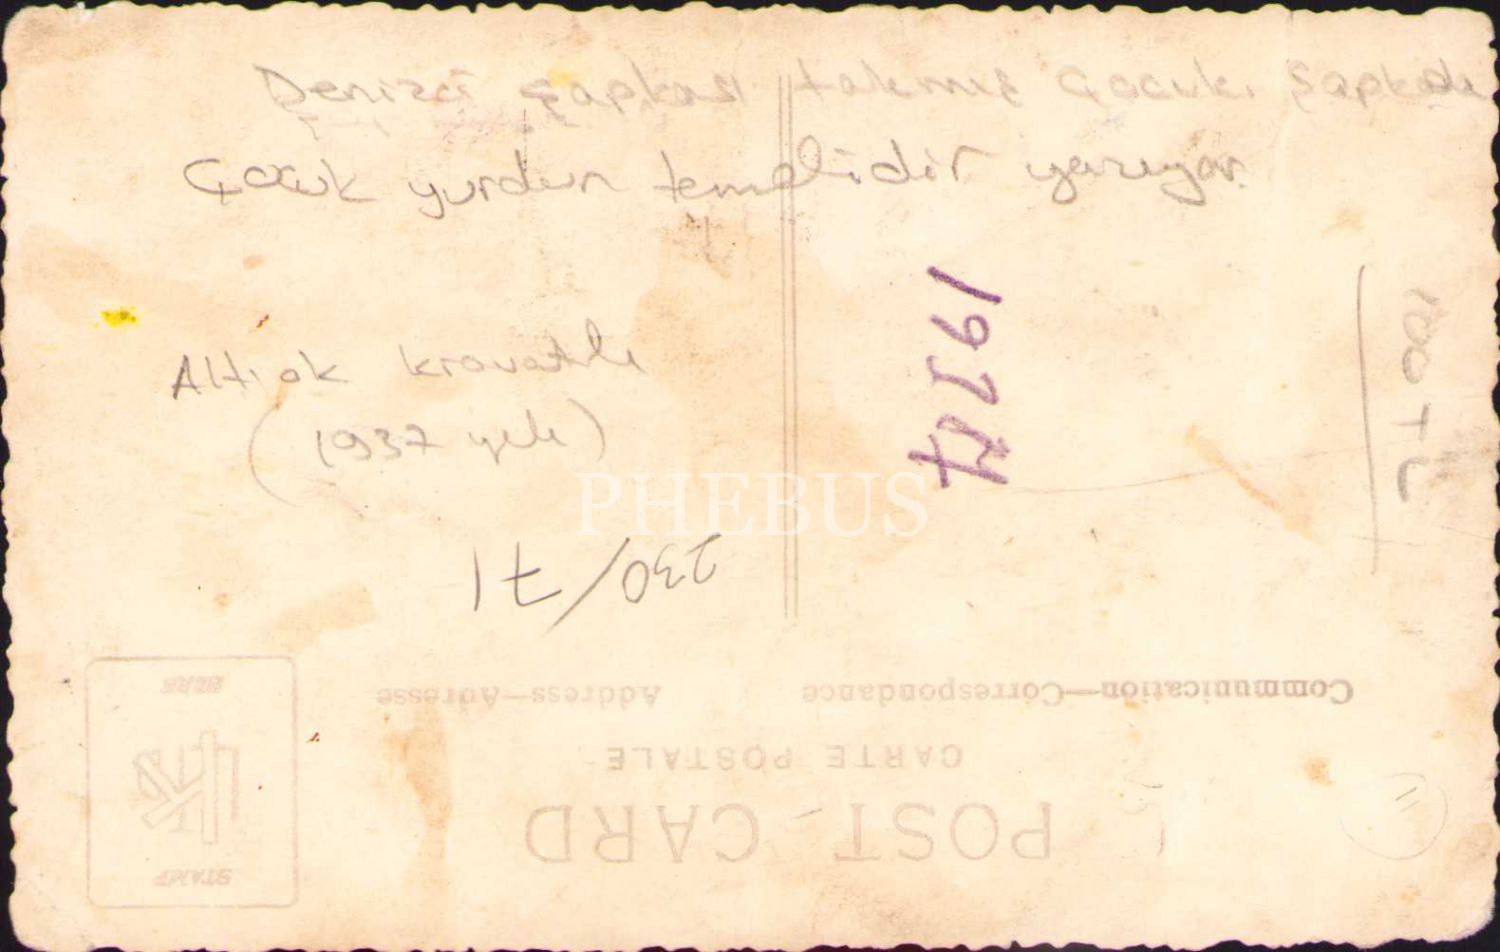 Denizci şapkası takmış Çocuk. Şapkada
Çocuk yurdun temelidir yazıyor.
Altıok kravatlı
(1937 yılı)
230/71
100 TL
PHEBUS
Communication—Correspondance
Address—Adresse
CARTE POSTALE
POST CARD
STAMP